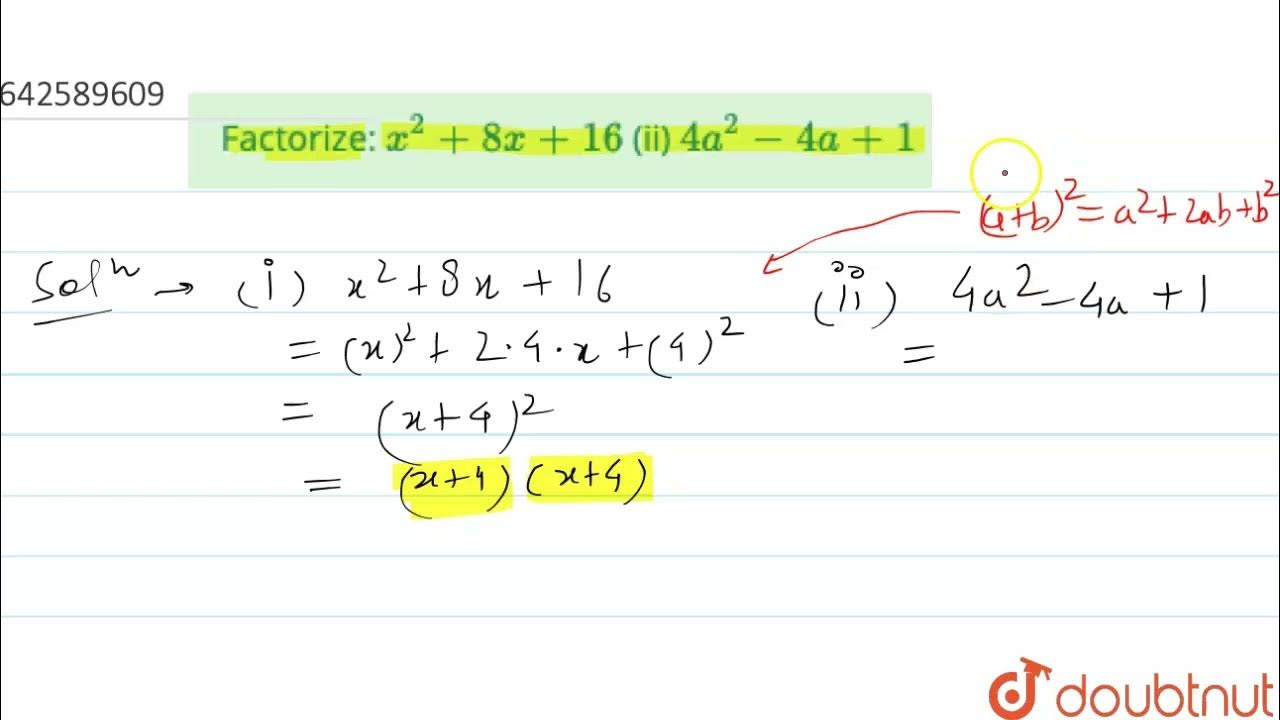 642589609
Factorize: x² + 8x + 16 (ii) 4a² − 4a + 1
(a+b)² = a² + 2ab + b²
Solⁿ → (i) x² + 8x + 16
= (x)² + 2·4·x + (4)²
= (x+4)²
= (x+4) (x+4)
(ii) 4a² − 4a + 1
=
doubtnut